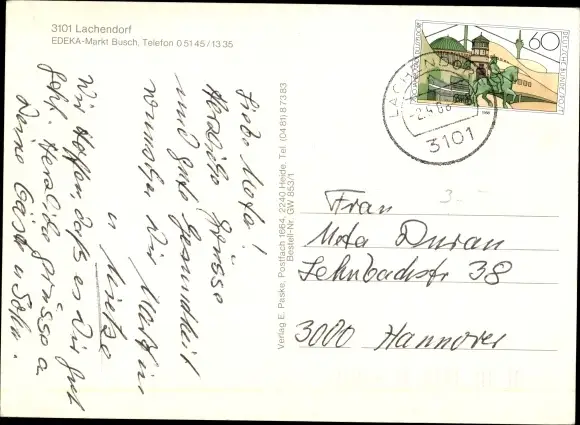 3101 Lachendorf
EDEKA-Markt Busch, Telefon 0 51 45 / 13 35
Liebe Meta!
Herzliche Grüsse
und gute Gesundheit
wünschen Dir Martin
u Mietze
Wir hoffen, daß es Dir gut
geht. Herzliche Grüsse a
Deine Gäst u Sohn.
Verlag E. Paske, Postfach 1664, 2240 Heide, Tel. (04 81) 8 73 83
Bestell-Nr. GW 853/1
60
DEUTSCHE BUNDESPOST
LACHENDORF
3101
3.-
Frau
Meta Duran
Lehnbachstr 38
3000 Hannover